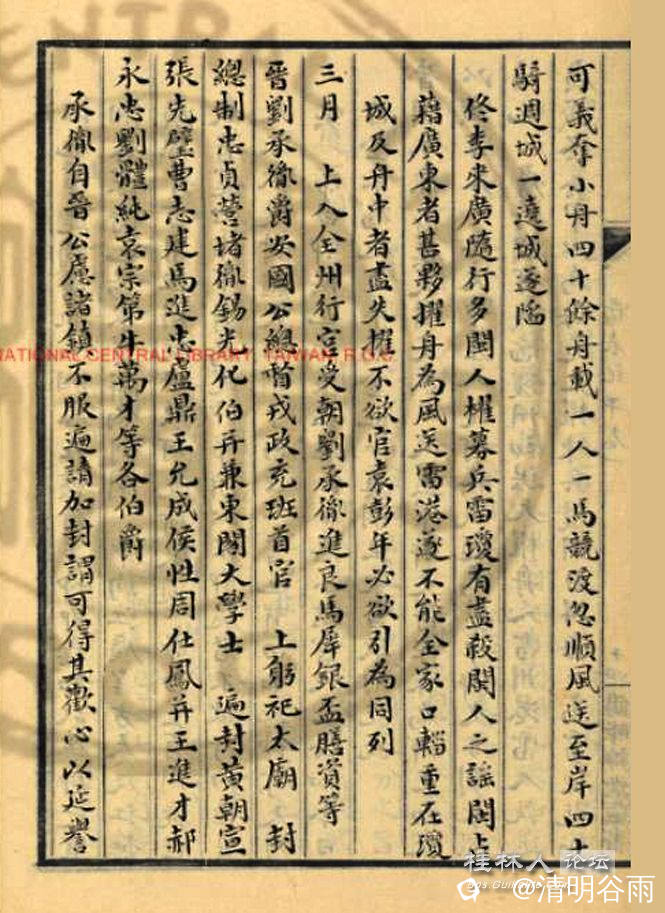 可義奪小舟四十餘舟載一人一馬競渡忽順風送至岸四十
騎週城一遶城遂陷
佟李來廣隨行多閩人櫂募兵雷瓊有盡殺閩人之謠閩占
籍廣東者甚夥櫂舟為風送雷港遂不能全家口輜重在瓊
城及舟中者盡失櫂不欲官袁彭年必欲引為同列
三月 上入全州行宮受朝劉承胤進良馬犀銀盃膳資等
晉劉承胤爵安國公總督戎政充班首官 上躬祀太廟 封
總制忠貞營堵胤錫光化伯并兼東閣大學士 遍封黃朝宣
張先璧曹志建馬進忠盧鼎王允成侯性周仕鳳并王進才郝
永忠劉體純袁宗第牛萬才等各伯爵
承胤自晉公慮諸鎮不服遍請加封謂可得其歡心以延譽
NATIONAL CENTRAL LIBRARY, TAIWAN R.O.C
桂林人论坛
@清明谷雨